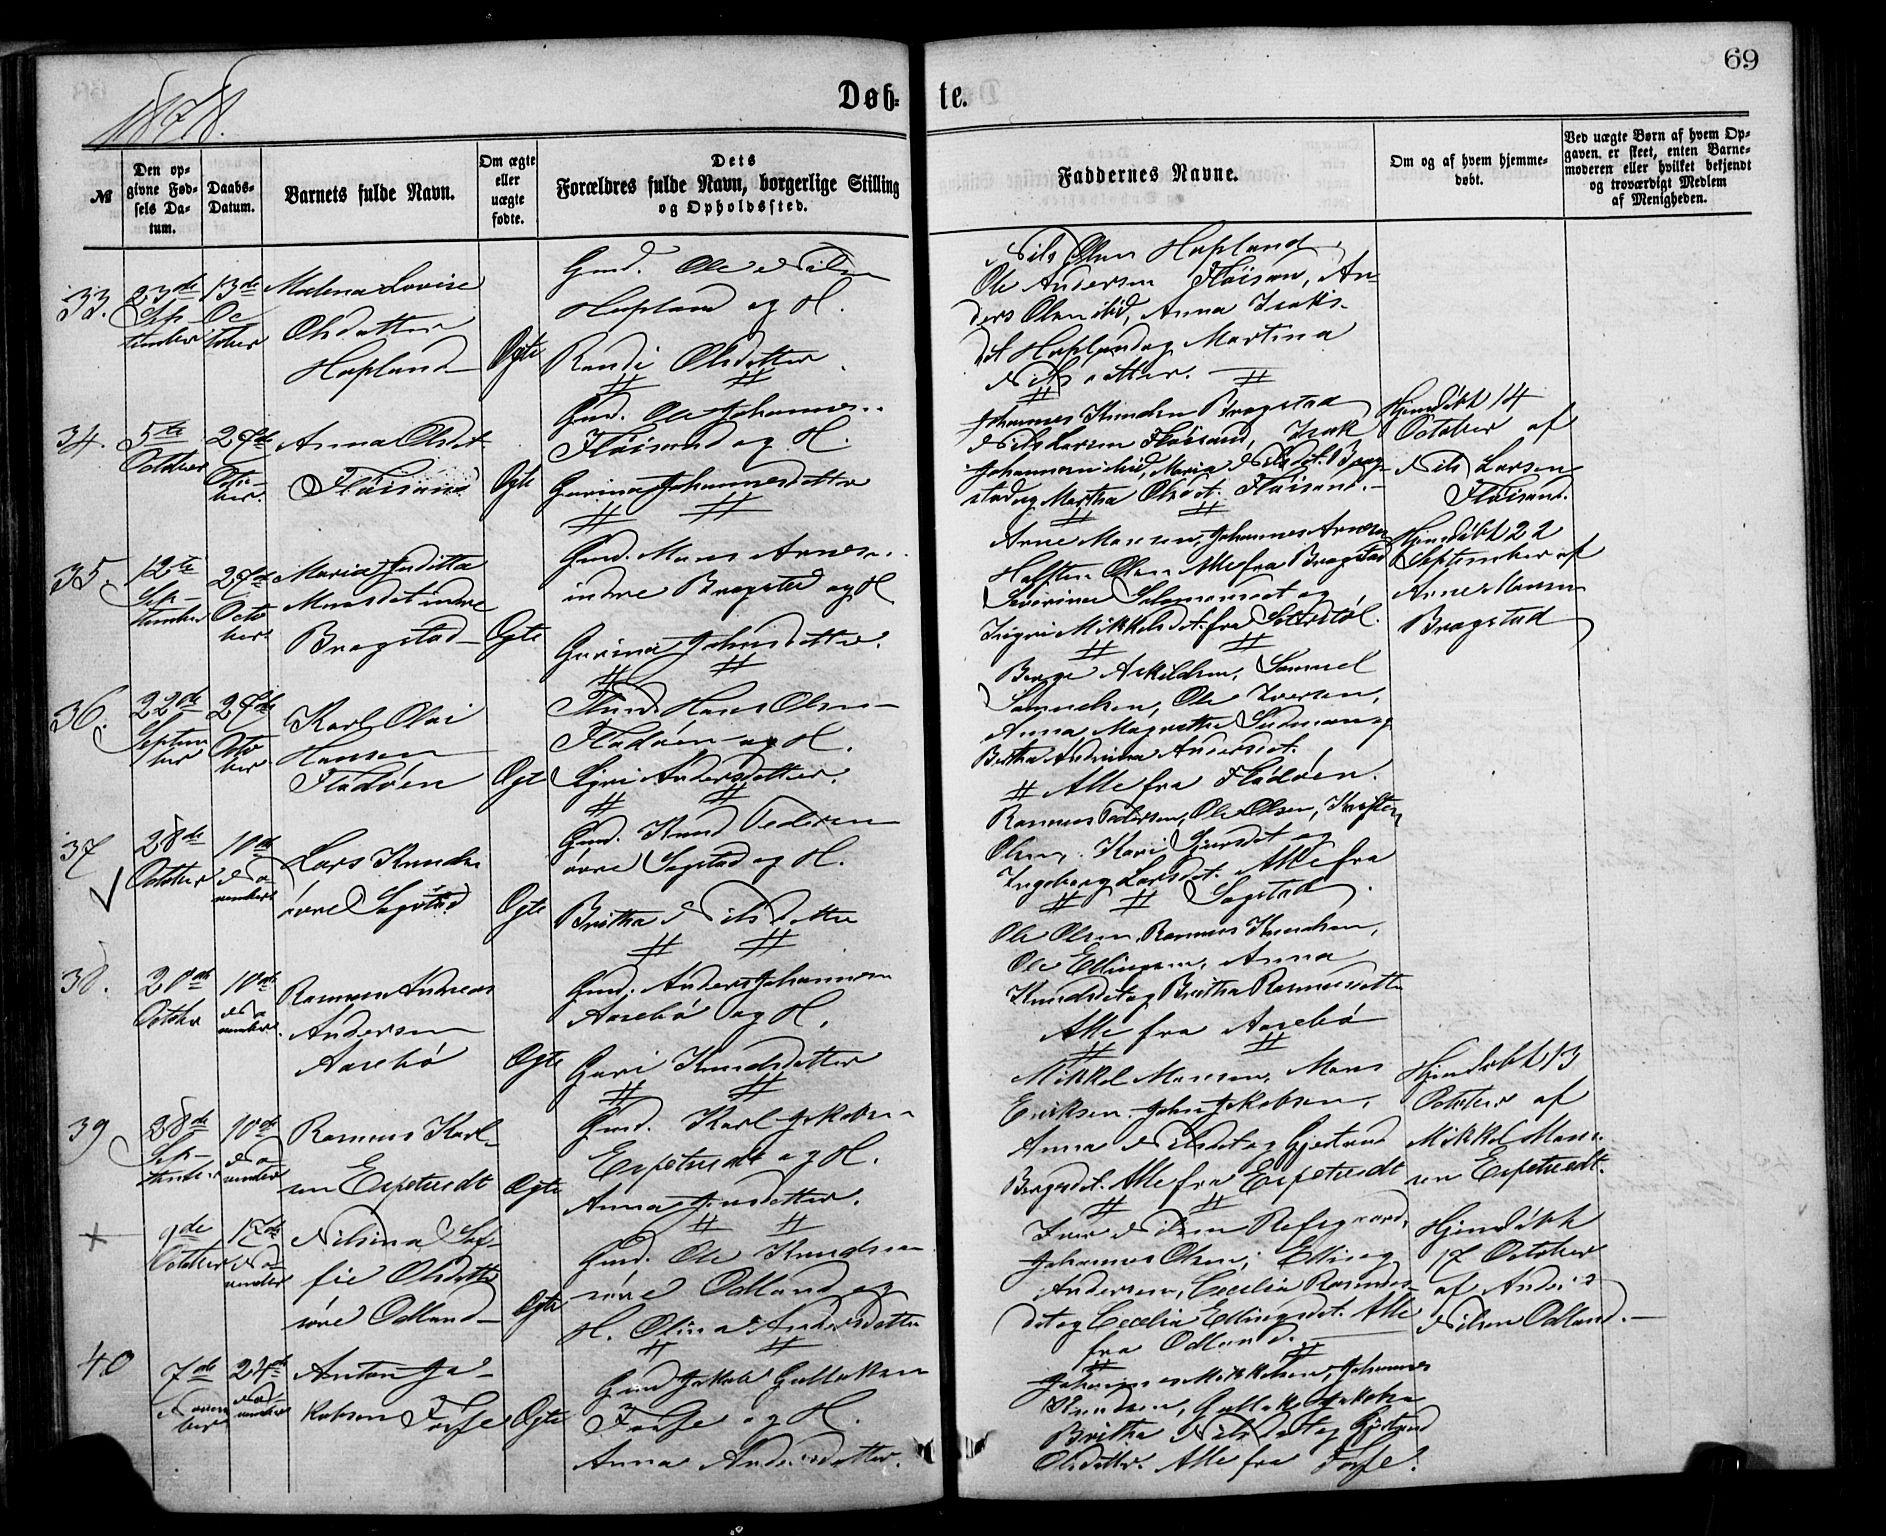 69
1878.
Døb- te.
№
Den op-
givne Fød-
sels Da-
tum.
Daabs-
Datum.
Barnets fulde Navn.
Om ægte
eller
uægte
fødte.
Dets
Forældres fulde Navn, borgerlige Stilling
og Opholdssted.
Faddernes Navne.
Om og af hvem hjemme-
døbt.
Ved uægte Børn af hvem Op-
gaven er skeet, enten Barne-
moderen eller hvilket bekjendt
og troværdigt Medlem
af Menigheden.
33.
23de
Sep-
tember
13de
Oc
tober
Malena Lovise
Olsdatter
Hopland
Ægte
Gmd. Ole Nilsen
Hopland og H.
Randi Olsdatter
Nils Olsen Hopland,
Ole Andersen Fløisan, An-
ders Olsen ibid, Anna Isaks-
dat Hopland og Martina
Nilsdatter.
34.
5te
October
27de
Octo-
ber.
Anna Olsdat
Fløisand
Ægte
Gmd. Ole Johannes..
Fløisand og H.
Gurina Johannesdatter
Johannes Knudsen Bragstad
Nils Larsen Fløisand, Isak
Johannesen ibid, Maria Nilsdat. Brag-
stad og Martha Olsdat. Fløisand.
Hjemdøbt 14
October af
Nils Larsen
Fløisand.
35.
12te
Sep-
tember
27de
Octo
ber
Maria Juditta
Monsdat indre
Bragstad
Ægte
Gmd. Mons Arnesen
indre Bragstad og H
Gurina Johnsdatter.
Arne Monsen, Johannes Arnesen
Halsten Olsen Alle fra Bragstad
Severina Salamonsdat og
Ingri Mikkelsdat. fra Sæterstøl.
Hjemdøbt 22
September af
Arne Monsen
Bragstad
36.
22de
Septem
ber
27de
Octo
ber
Karl Olai
Hansen
Fladøen
Ægte
Hans Olsen
Fladøen og H.
Siri Andersdatter.
Berge Askildsen, Samuel
Samuelsen, Ole Iversen,
Anna Magrethe Salamon og
Bertha Andrina Andersdat.
Alle fra Fladøen.
37
28de
October
10de
No-
vember
Lars Knudsen
øvre Sagstad
Ægte
Gmd. Knud Pedersen
øvre Sagstad og H.
Britha Nilsdatter
Rasmus Pedersen, Ole Olsen,
Olsen, Kari Sjursdat og
Ingeborg Larsdat. Alle fra
Sagstad.
38.
20de
October
10de
No
vember.
Rasmus Andreas
Andersen
Aasebø
Ægte
Gmd. Anders Johannesen
Aasebø og H.
Guri Knudsdatter
Ole Olsen, Rasmus Knudsen,
Ole Ellingsen, Anna
Knudsdat og Britha Rasmusdatter
Alle fra Aasebø
39
28de
Sep-
tember
10de
No-
vember
Rasmus Karl-
sen Espetvedt
Ægte
Gmd. Karl Jakobsen
Espetvedt og H.
Anna Jensdatter.
Mikkel Monsen, Mons
Eriksen, John Jakobsen,
Anna Nilsdat og Gjertrud
Bergesdat. Alle fra Espetvedt
Hjemdøbt 13
October af
Mikkel Mon-
sen Espetvedt.
+
9de
October
17de
No-
vember
Nilsina Sof-
fie Olsdatter
søre Odland
Ægte
Gmd. Ole Knudsen
søre Odland og
H. Olina Andersdatter
Iver Nilsen Refsgaard,
Johannes Olsen, Elling
Andersen, Cecelia Rasmus-
dat og Cecelia Ellingsdat. Alle
fra Odland.
Hjemdøbt
17 October
af Anders
Nilsen Odland.
40
7de
Novem
ber
24de
No-
vember
Anton Ja-
kobsen Fosse
Ægte
Gmd Jakob Gullaksen
Fosse og H.
Anna Andersdatter.
Johannes Mikkelsen, Johannes
Knudsen, Gullak Jakobsen
Britha Nilsdat og Gjertrud
Olsdatter. Alle fra Fosse.